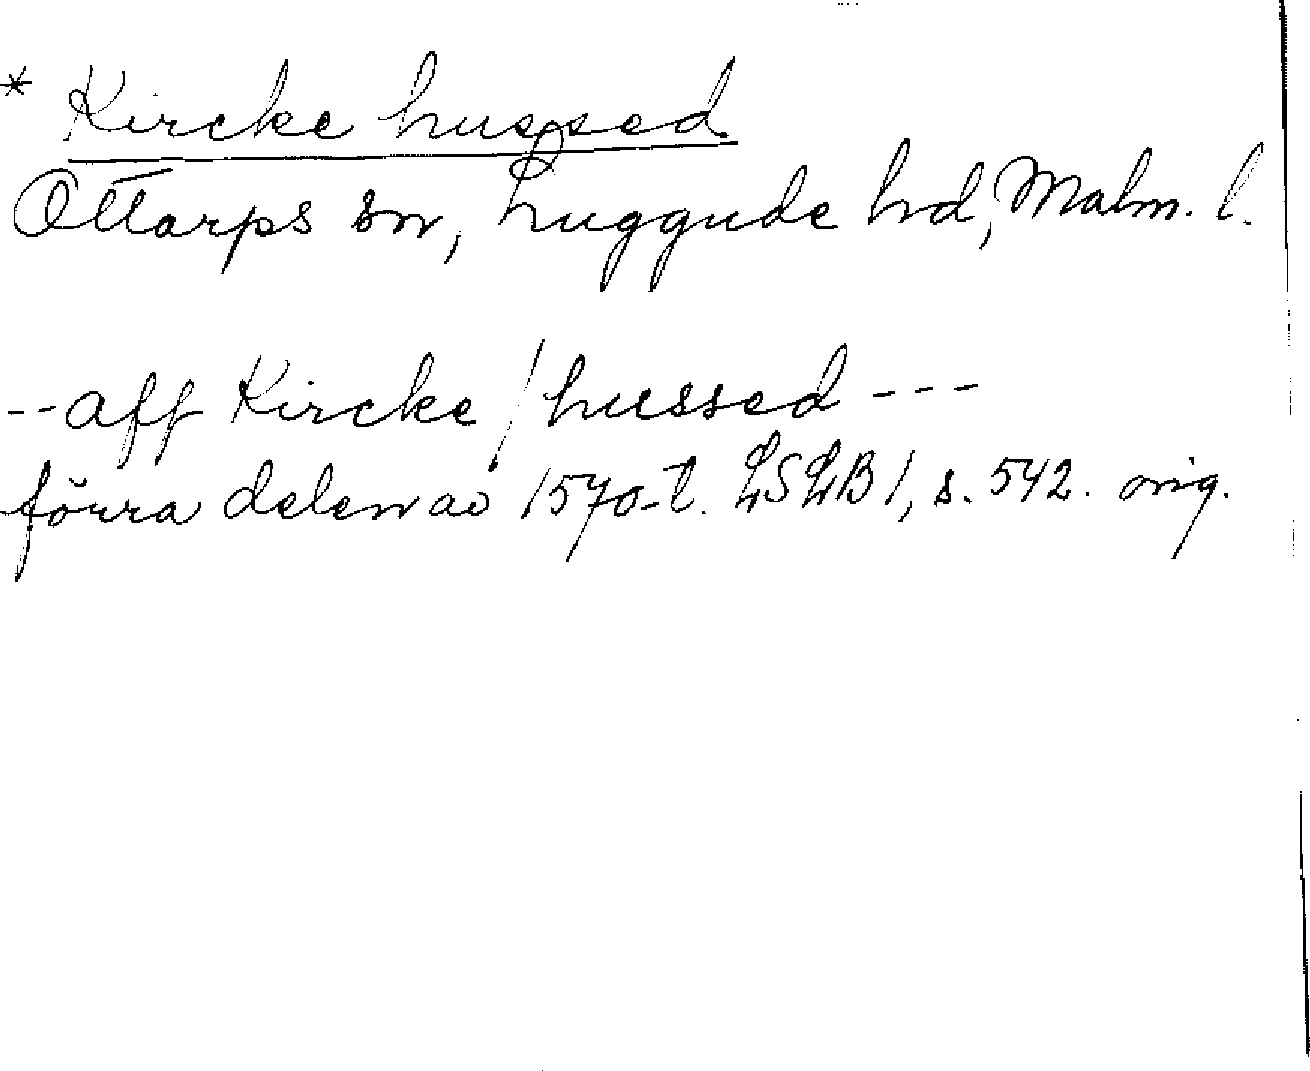 * Kircke hussed
Ottarps sn, Luggude hd, Malm. l.
--aff Kircke / hussed ---
förra delen av 1570-t. LSLB 1, s. 542. orig.